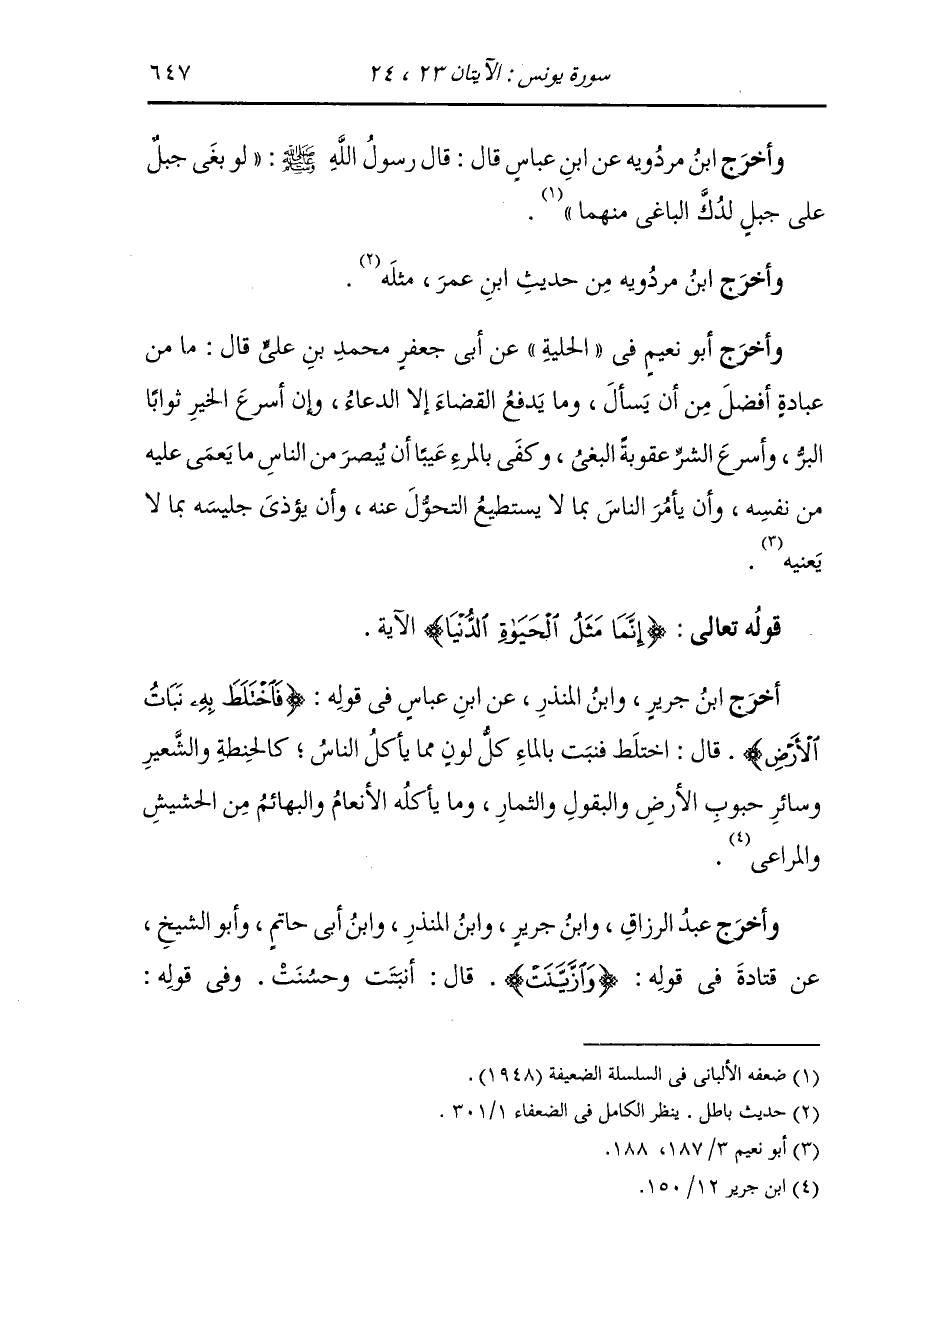 سورة يونس : الآيتان ٢٣ ، ٢٤ ٦٤٧
وأخرَج ابنُ مردُويه عن ابنِ عباسٍ قال : قال رسولُ اللَّهِ ﷺ : « لو بغَى جبلٌ
على جبلٍ لدُكَّ الباغى منهما »(١) .
وأخرَج ابنُ مردُويه مِن حديثِ ابنِ عمرَ ، مثلَه(٢) .
وأخرَج أبو نعيمٍ فى « الحليةِ » عن أبى جعفرٍ محمدِ بنِ علىٍّ قال : ما من
عبادةٍ أفضلَ مِن أن يَسألَ ، وما يَدفعُ القضاءَ إلا الدعاءُ ، وإن أسرعَ الخيرِ ثوابًا
البرُّ ، وأسرعَ الشرِّ عقوبةً البغىُ ، وكفَى بالمرءِ عَيبًا أن يُبصرَ من الناسِ ما يَعمَى عليه
من نفسِه ، وأن يأمُرَ الناسَ بما لا يستطيعُ التحوُّلَ عنه ، وأن يؤذىَ جليسَه بما لا
يَعنيه(٣) .
قولُه تعالى : ﴿إِنَّمَا مَثَلُ ٱلْحَيَوٰةِ ٱلدُّنْيَا﴾ الآية .
أخرَج ابنُ جريرٍ ، وابنُ المنذرِ ، عن ابنِ عباسٍ فى قولِه : ﴿فَٱخْتَلَطَ بِهِۦ نَبَاتُ
ٱلْأَرْضِ﴾ . قال : اختلَط فنبَت بالماءِ كلُّ لونٍ مما يأكلُ الناسُ ؛ كالحِنطةِ والشَّعيرِ
وسائرِ حبوبِ الأرضِ والبقولِ والثمارِ ، وما يأكلُه الأنعامُ والبهائمُ مِن الحشيشِ
والمراعى(٤) .
وأخرَج عبدُ الرزاقِ ، وابنُ جريرٍ ، وابنُ المنذرِ ، وابنُ أبى حاتمٍ ، وأبو الشيخِ ،
عن قتادةَ فى قولِه : ﴿وَٱزَّيَّنَتْ﴾ . قال : أنبَتَت وحسُنَتْ . وفى قولِه :
(١) ضعفه الألبانى فى السلسلة الضعيفة (١٩٤٨) .
(٢) حديث باطل . ينظر الكامل فى الضعفاء ٣٠١/١ .
(٣) أبو نعيم ٣/ ١٨٧، ١٨٨.
(٤) ابن جرير ١٢/ ١٥٠.